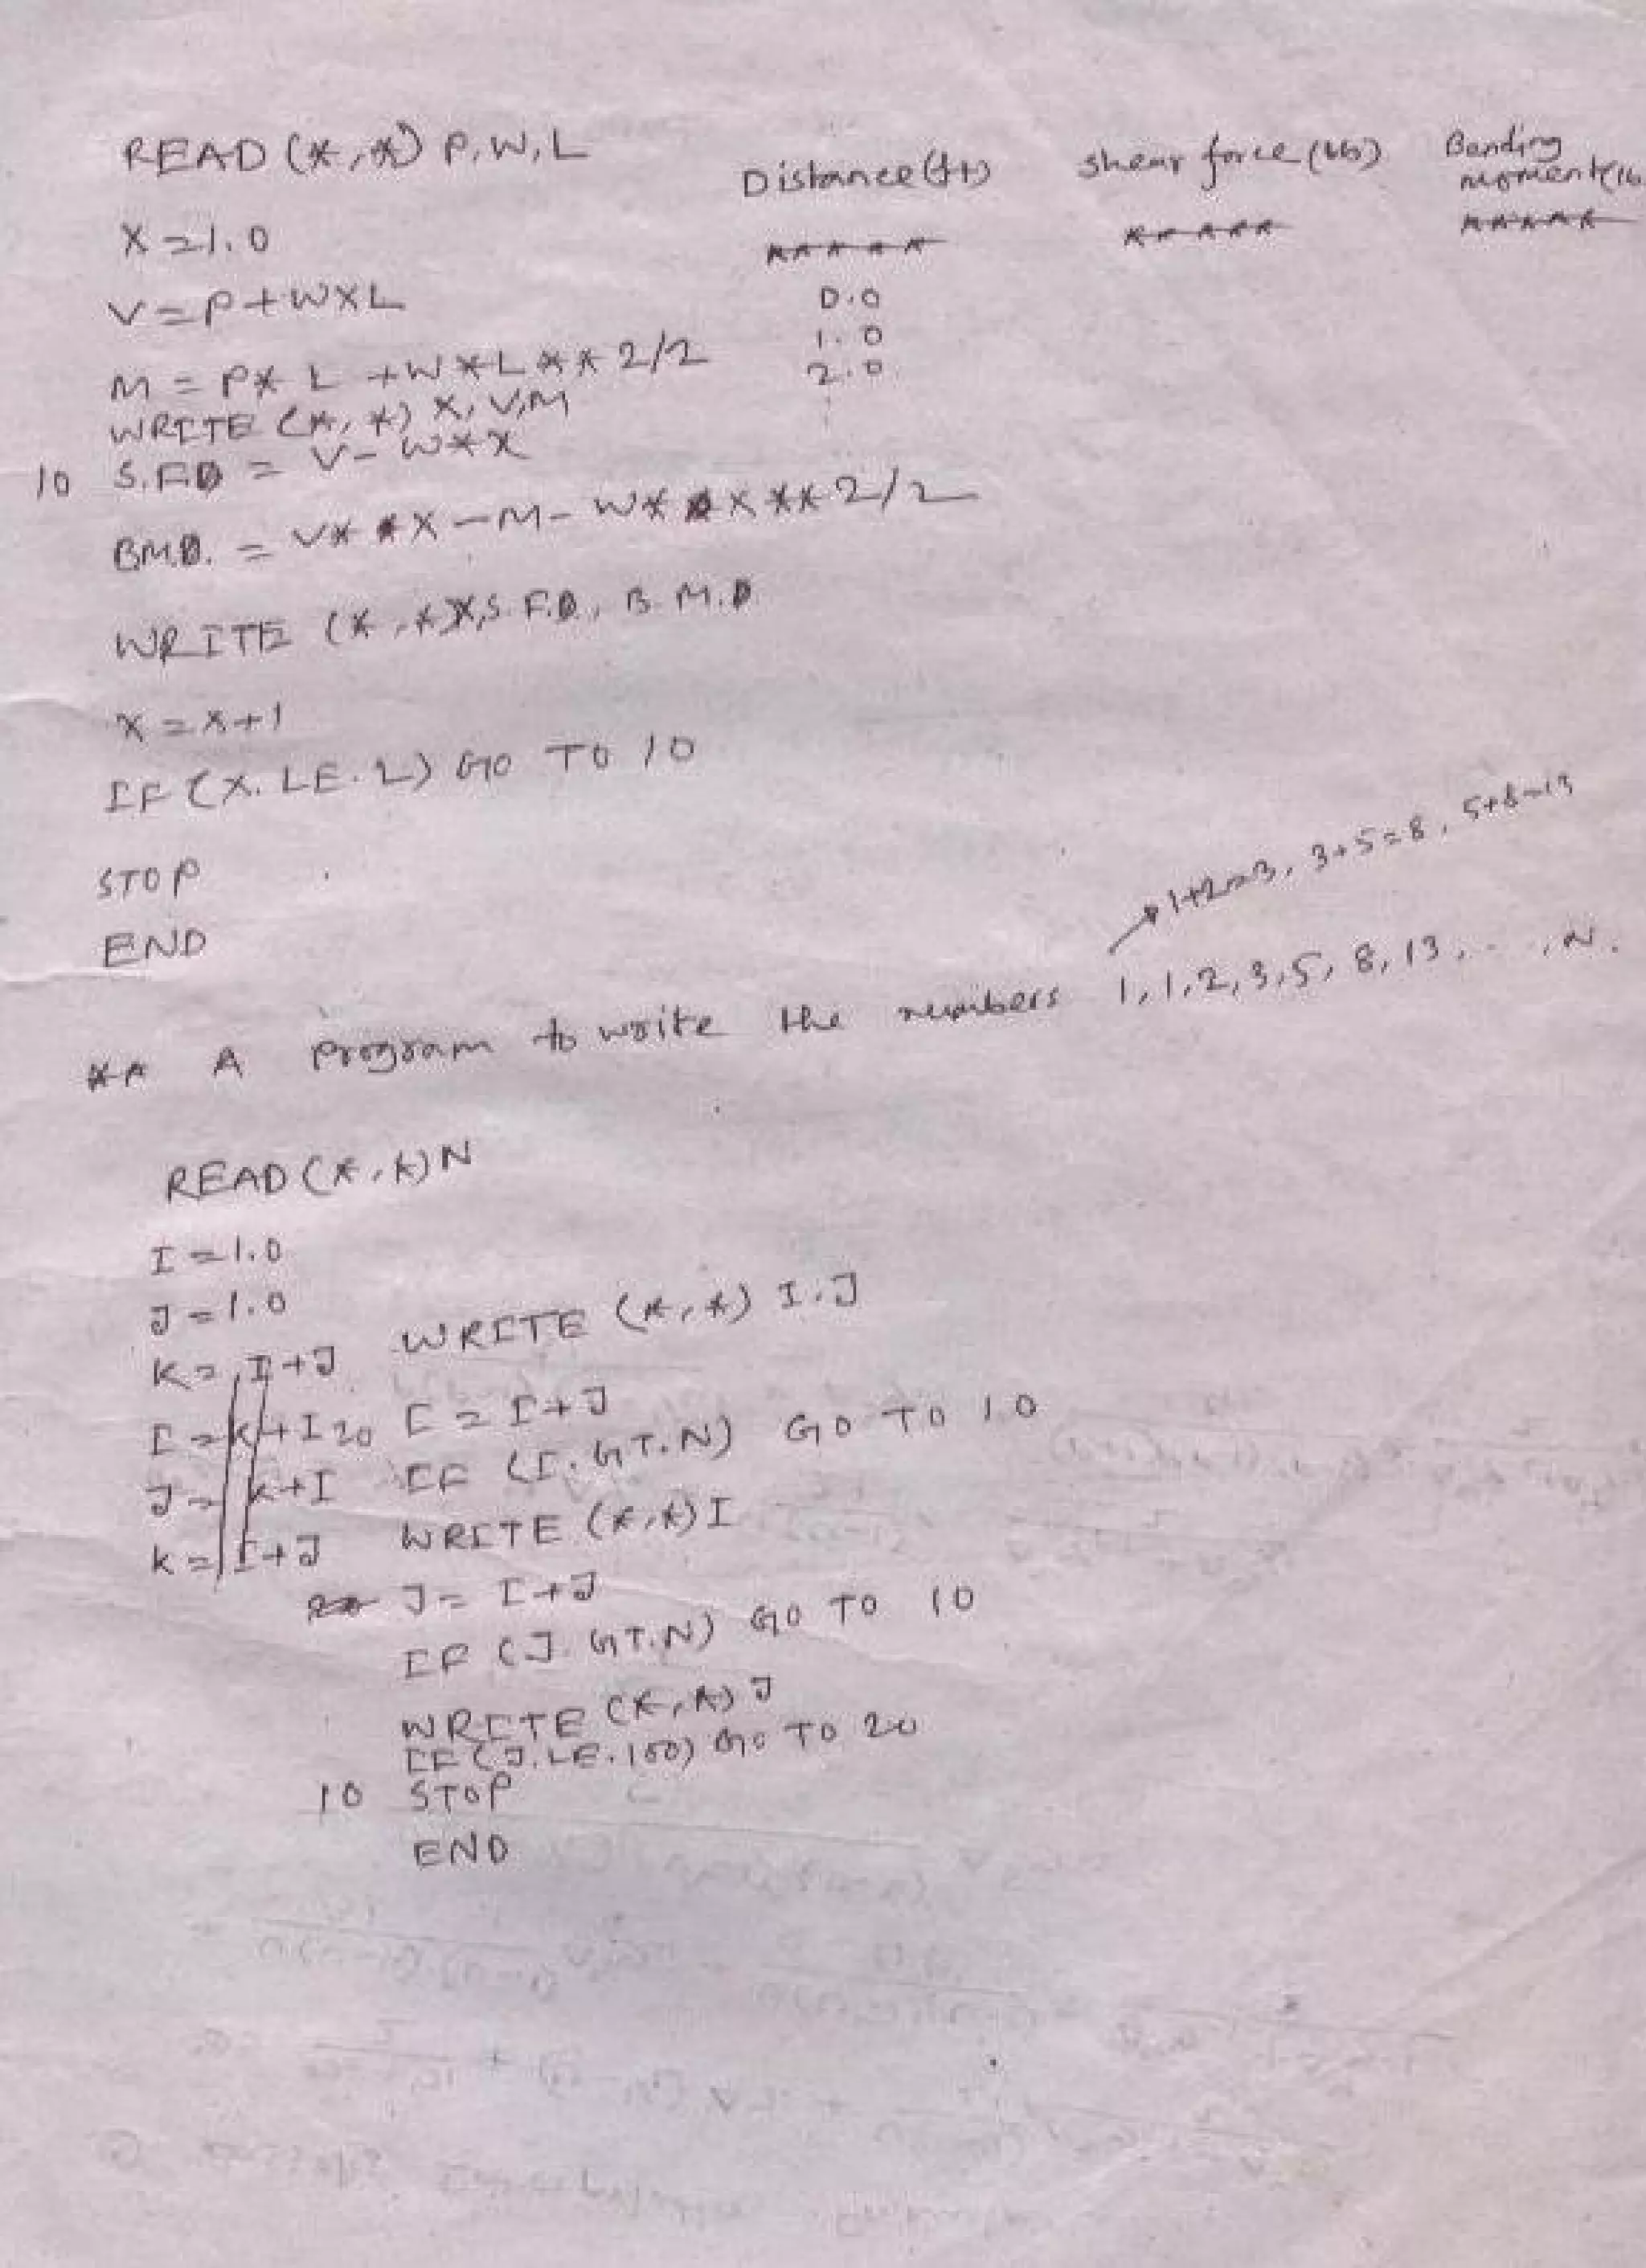 READ (*,*) P, W, L
Distance (ft) Shear force (lbs) Bending moment (lb
***** ***** *****
X = 1.0
V = P + W X L
0.0
1.0
2.0
M = P * L + W * L ** 2/2
WRITE (*, *) X, V, M
10 S.F = V - W * X
B.M. = V * X - M - W * X ** 2/2
WRITE (*, *) X, S.F., B.M.
X = X + 1
IF (X.LE.L) GO TO 10
STOP
END
1+2=3, 3+5=8, 5+8=13
** A program to write the numbers 1, 1, 2, 3, 5, 8, 13, . . , N.
READ (*, *) N
I = 1.0
J = 1.0
K = I + J
I = K + I
J = K + I
K = I + J
WRITE (*, *) I, J
20 I = I + J
IF (I.GT.N) GO TO 10
WRITE (*, *) I
J = I + J
IF (J.GT.N) GO TO 10
WRITE (*, *) J
IF (J.LE.100) GO TO 20
10 STOP
END